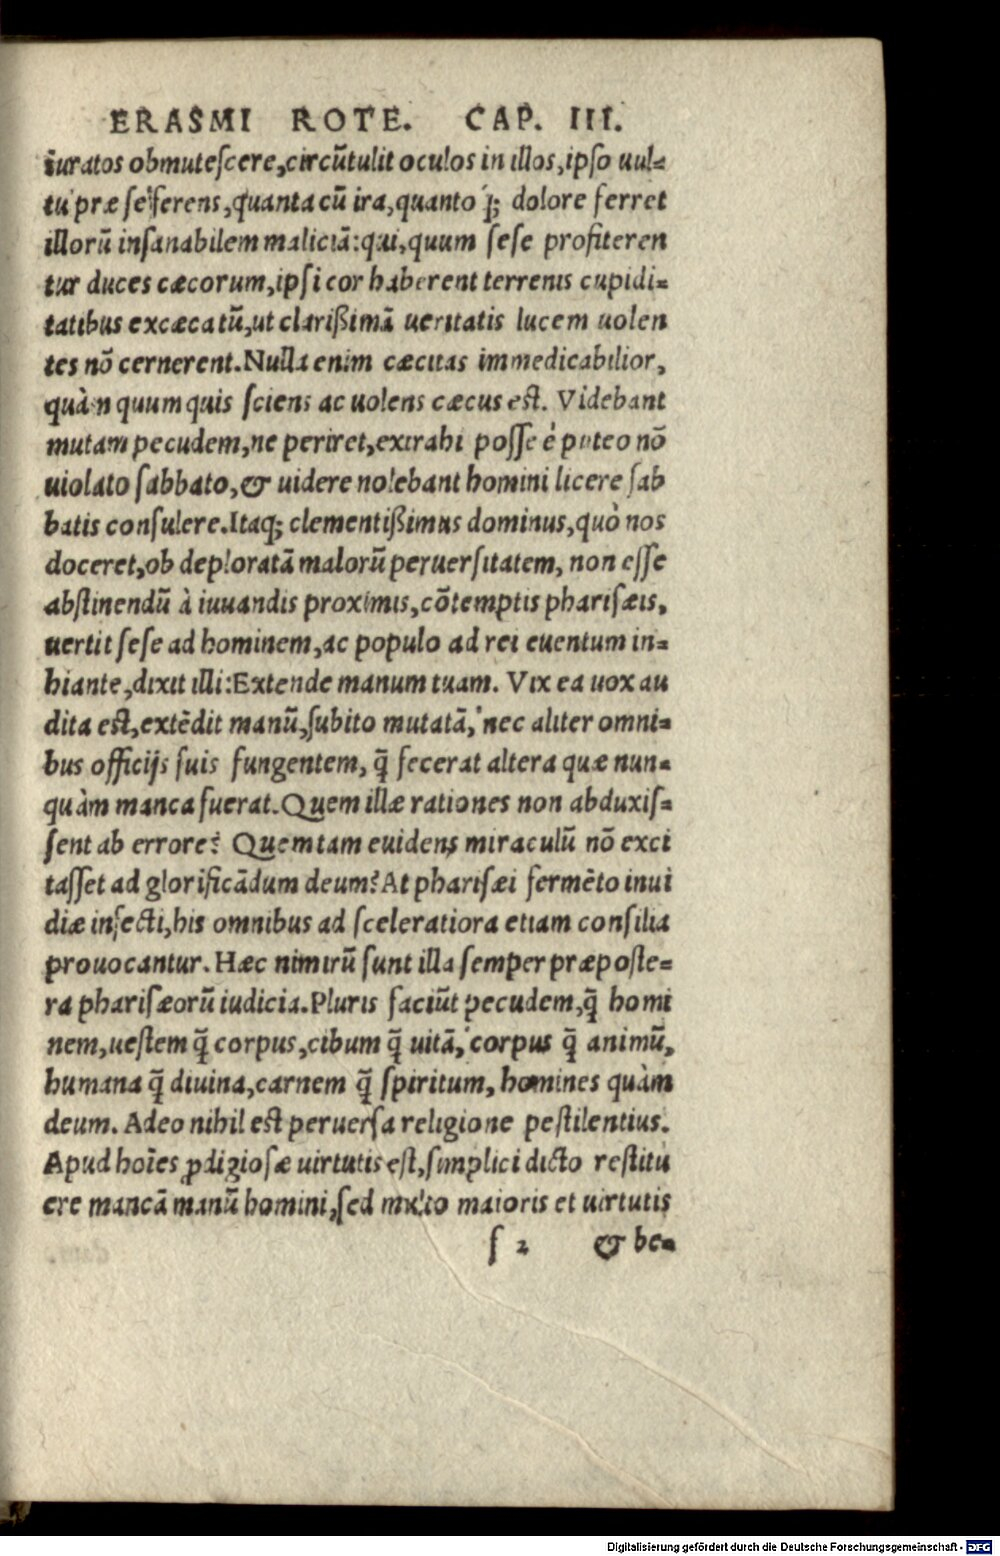 ERASMI ROTE. CAP. III.
iuratos obmutescere,circũtulit oculos in illos,ipso uul=
tu præ se ferens,quanta cũ ira,quanto q́; dolore ferret
illorũ insanabilem maliciã:qui,quum sese profiteren
tur duces cæcorum,ipsi cor haberent terrenis cupidi=
tatibus excæcatũ,ut clarißimã ueritatis lucem uolen
tes nõ cernerent.Nulla enim cæcitas immedicabilior,
quàm quum quis sciens ac uolens cæcus est. Videbant
mutam pecudem,ne periret,extrahi posse è puteo nõ
uiolato sabbato,& uidere nolebant homini licere sab
batis consulere.Itaq; clementißimus dominus,quò nos
doceret,ob deploratã malorũ peruersitatem, non esse
abstinendũ à iuuandis proximis,cõtemptis pharisæis,
uertit sese ad hominem,ac populo ad rei euentum in=
hiante,dixit illi:Extende manum tuam. Vix ea uox au
dita est,extẽdit manũ,subito mutatã, nec aliter omni=
bus officijs suis fungentem, q̃ fecerat altera quæ nun=
quàm manca fuerat.Quem illæ rationes non abduxis=
sent ab errore? Quem tam euidens miraculũ nõ exci
tasset ad glorificãdum deum? At pharisæi fermẽto inui
diæ infecti,his omnibus ad sceleratiora etiam consilia
prouocantur. Hæc nimirũ sunt illa semper præposte=
ra pharisæorũ iudicia.Pluris faciũt pecudem,q̃ homi
nem,uestem q̃ corpus,cibum q̃ uitã, corpus q̃ animũ,
humana q̃ diuina,carnem q̃ spiritum, homines quàm
deum. Adeo nihil est peruersa religione pestilentius.
Apud hoĩes ꝓdigiosæ uirtutis est,simplici dicto restitu
ere mancã manũ homini,sed multo maioris et uirtutis
s 2 & be=
Digitalisierung gefördert durch die Deutsche Forschungsgemeinschaft - DFG